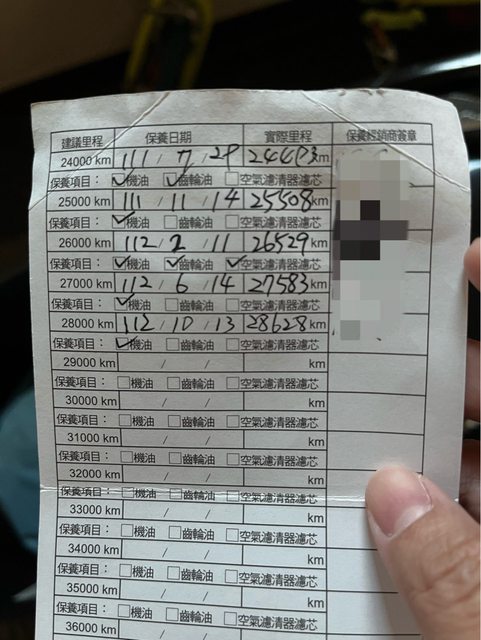 建議里程 保養日期 實際里程 保養經銷商簽章
24000 km 111 / 7 / 29 24473km
保養項目： ✓機油 ✓齒輪油 □空氣濾清器濾芯
25000 km 111 / 11 / 14 25508km
保養項目： ✓機油 □齒輪油 □空氣濾清器濾芯
26000 km 112 / 2 / 11 26529km
保養項目： ✓機油 ✓齒輪油 ✓空氣濾清器濾芯
27000 km 112 / 6 / 14 27583km
保養項目： ✓機油 □齒輪油 □空氣濾清器濾芯
28000 km 112 / 10 / 13 28628km
保養項目： ✓機油 □齒輪油 □空氣濾清器濾芯
29000 km / / km
保養項目： □機油 □齒輪油 □空氣濾清器濾芯
30000 km / / km
保養項目： □機油 □齒輪油 □空氣濾清器濾芯
31000 km / / km
保養項目： □機油 □齒輪油 □空氣濾清器濾芯
32000 km / / km
保養項目： □機油 □齒輪油 □空氣濾清器濾芯
33000 km / / km
保養項目： □機油 □齒輪油 □空氣濾清器濾芯
34000 km / / km
保養項目： □機油 □齒輪油 □空氣濾清器濾芯
35000 km / /
保養項目： □機油 □齒輪油 □空氣濾清器濾芯
36000 km